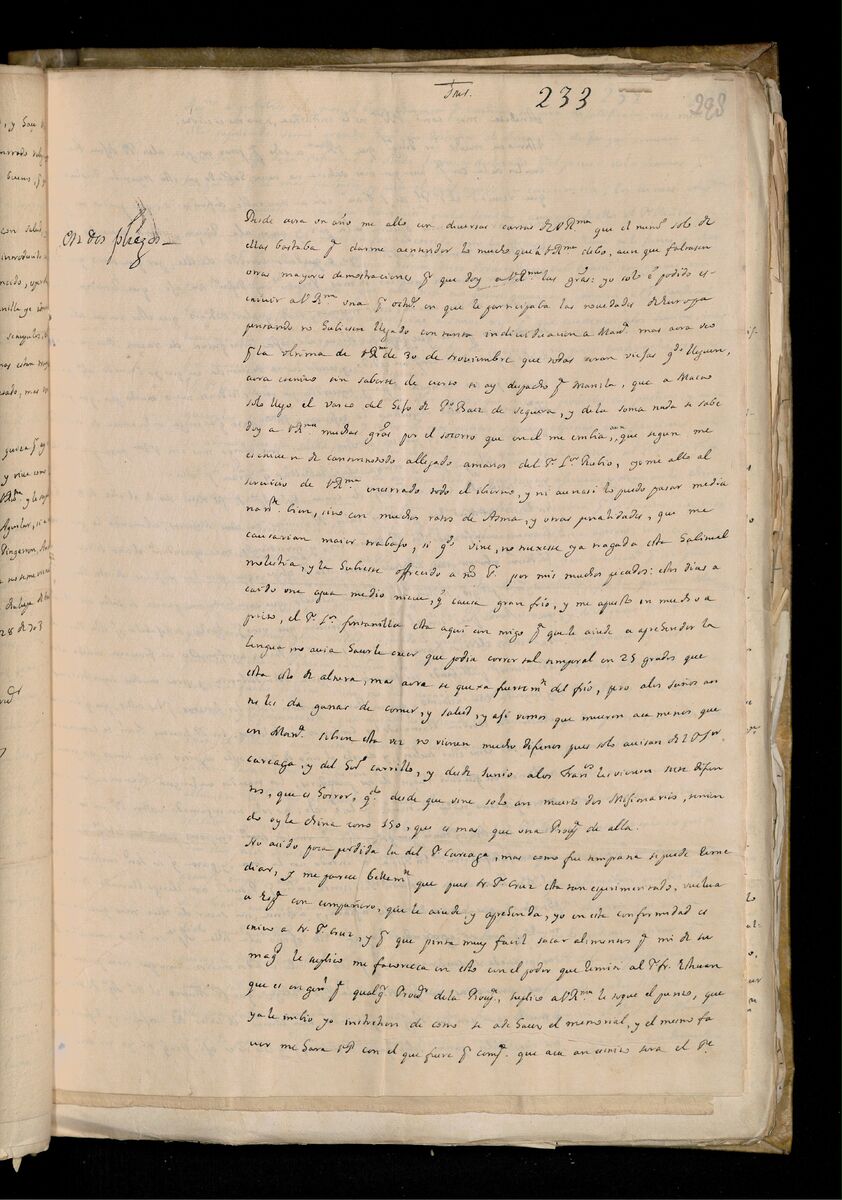 Jhs.
233
293
En dos pliegos
Desde aora un año me allo con diversas cartas de V Rma que el menor solo de
ellas bastaba pa darme a entender lo mucho que a V Rma debo, aun que faltasen
otras mayores demostraciones pr que doy a V Rma las gras: yo solo e podido es-
crivir a V Rma una pr octe en que le participaba las novedades de Europa
pensando no hubiesen llegado con tanta individuacion a Mana mas aora veo
pr la ultima de V Rma de 30 de Noviembre que todas seran viejas qdo lleguen,
aora escrivo sin saberse de cierto si ay despacho pa Manila, que a Macao
solo llego el varco del hijo de Po Baez de sequera, y de la soma nada se sabe
doy a V Rma muchas gras por el socorro que en el me embia, que segun me
escriven de Cantun todo a llegado a manos del Pe Lor Rubio, yo me allo al
servicio de V Rma encerrado todo el ibierno, y ni aun asi lo puedo pasar media
namte bien, sino con muchos ratos de Asma, y otras penalidades, que me
causarian maior trabajo, si qdo vine, no truxese ya tragada esta habitual
molestia, y la hubiese offrecido a no Sr por mis muchos pecados: estos dias a
caido une agua medio nieve, qe causa gran frio, y me apreto en mucho a
prieto, el Pe Lor fontanilla esta aqui con migo pa que le aiude a aprehender la
lengua no avia hacerle creer que podia correr tal temporal en 25 grados que
esta esto de altura, mas aora se quexa fuertemte del frio, pero a los suios aun
no les da ganas de comer, y salud, y asi vemos que mueren aca menos que
en Mana si bien esta vez no vienen muchos difuntos pues solo avisan del Pe Fr.
careaga, y del Sor carrillo, y desde Junio a los Francos les vienen siete difun
tos, que es horror, qdo desde que vine solo an muerto dos Misionarios, tenien
do oy la china como 150, que es mas que una Prova de alla.
No a sido poca perdida la del Pe Careaga, mas como fue temprana se puede reme
diar, y me parece bellamte que pues N. Pe Cruz esta tan experimentado, vuelva
a Espa con compañero, que le aiude, y aprehenda, yo en esta conformidad es
crivo a N. Pe Cruz, y pr que pinta muy facil sacar alimentos pa mi de su
magd le suplico me favorezca en esto con el poder que remiti al Pe fr. Esteuan
que es en genl pa qualqr Procr de la Prova, suplico a V Rma le toque el punto, que
ya le embio yo instruccion de como se a de hacer el memorial, y el mesmo fa
vor me hara V P con el que fuere pr compo que aca an escrito sera el Pe